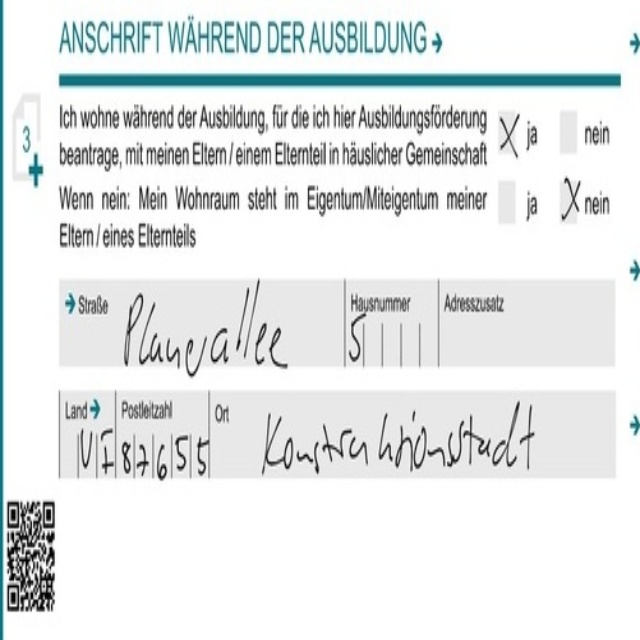 ANSCHRIFT WÄHREND DER AUSBILDUNG
3
Ich wohne während der Ausbildung, für die ich hier Ausbildungsförderung
beantrage, mit meinen Eltern / einem Elternteil in häuslicher Gemeinschaft
X ja nein
Wenn nein: Mein Wohnraum steht im Eigentum/Miteigentum meiner
Eltern / eines Elternteils
ja X nein
Straße Hausnummer Adresszusatz
Planerallee 5
Land Postleitzahl Ort
87655 Konstruktionsstadt